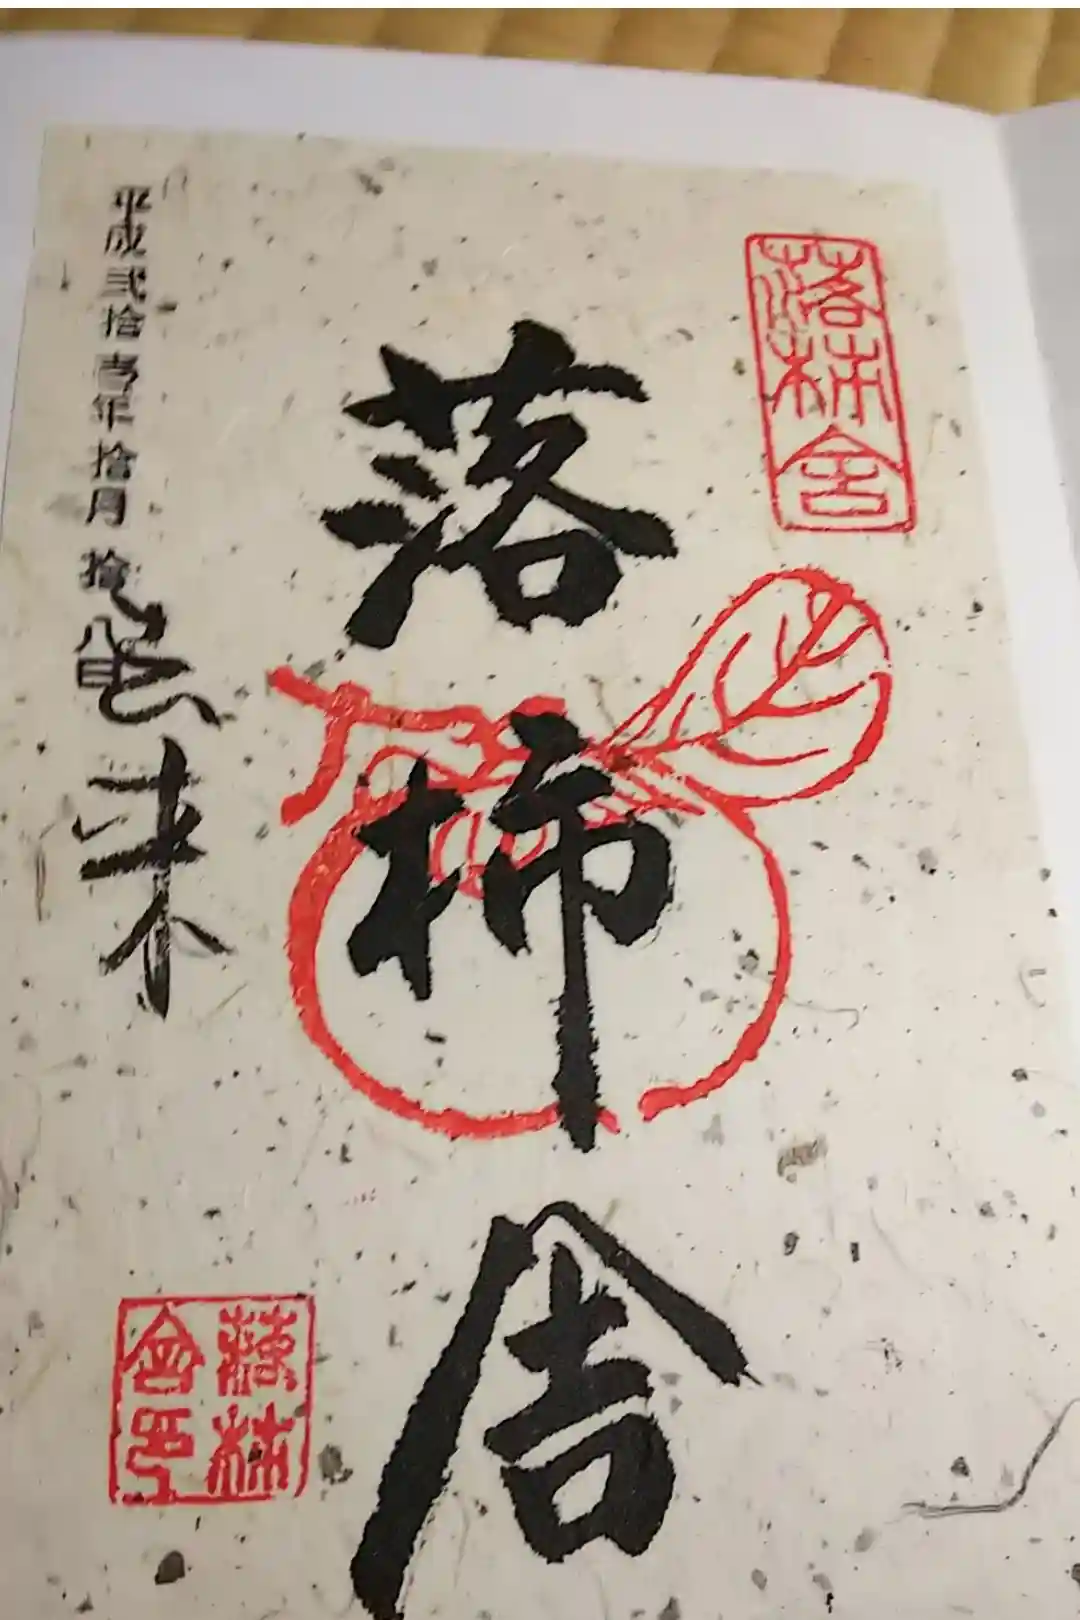 落柿舎
落柿舎
平成弐拾壱年拾月拾八日
去来
落柿
舎印